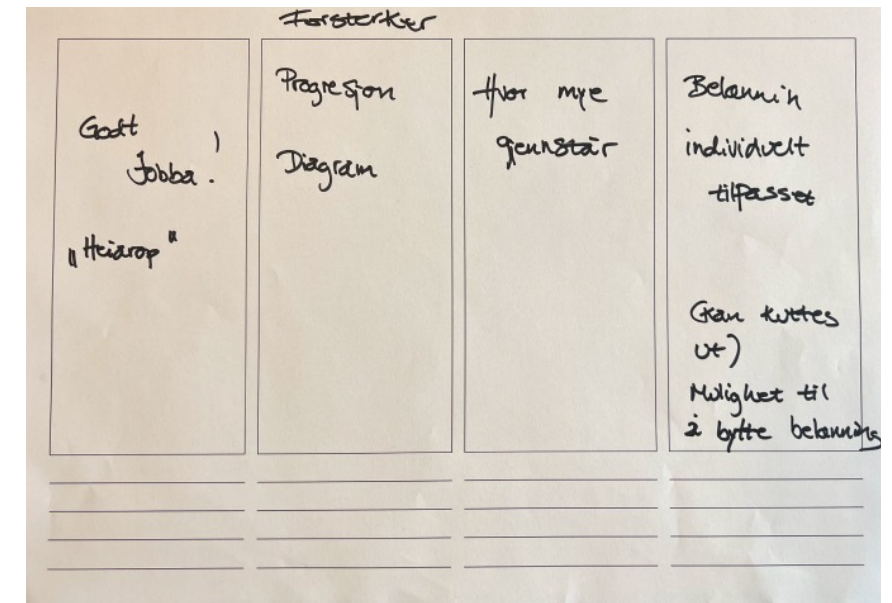 Forsterker
Godt
Jobba!
"Heiarop"
Progresjon
Diagram
Hvor mye
gjennstår
Belønnin
individuelt
tilpasset
(kan kuttes
ut)
Mulighet til
å bytte belønning